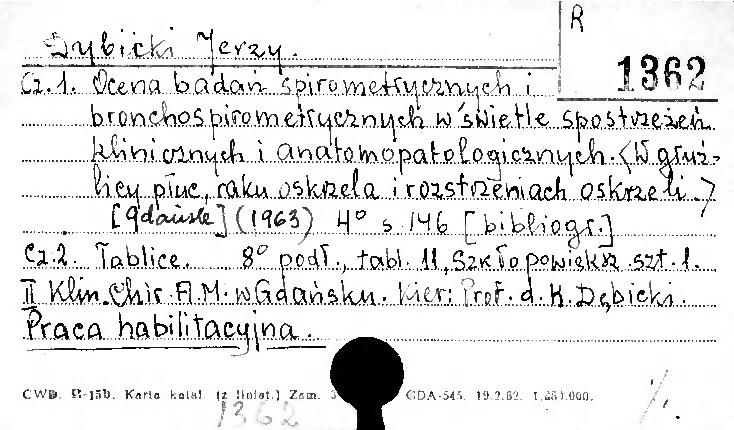 R
Dybicki Jerzy.
1362
Cz.1. Ocena badań spirometrycznych i
bronchospirometrycznych w świetle spostrzeżeń
klinicznych i anatomopatologicznych. (W gruź-
licy płuc, raku oskrzela i rozstrzeniach oskrzeli.)
[Gdańsk] (1963) 4° s. 146 [bibliogr.]
Cz.2. Tablice. 8° podł., tabl. 11, Szkło powiększ. szt. 1.
II Klin. Chir. A.M. w Gdańsku. Kier: Prof. d. K. Dębicki.
Praca habilitacyjna.
CWD. Karta katal. Zam. GDA-545. 19.2.62.
1362